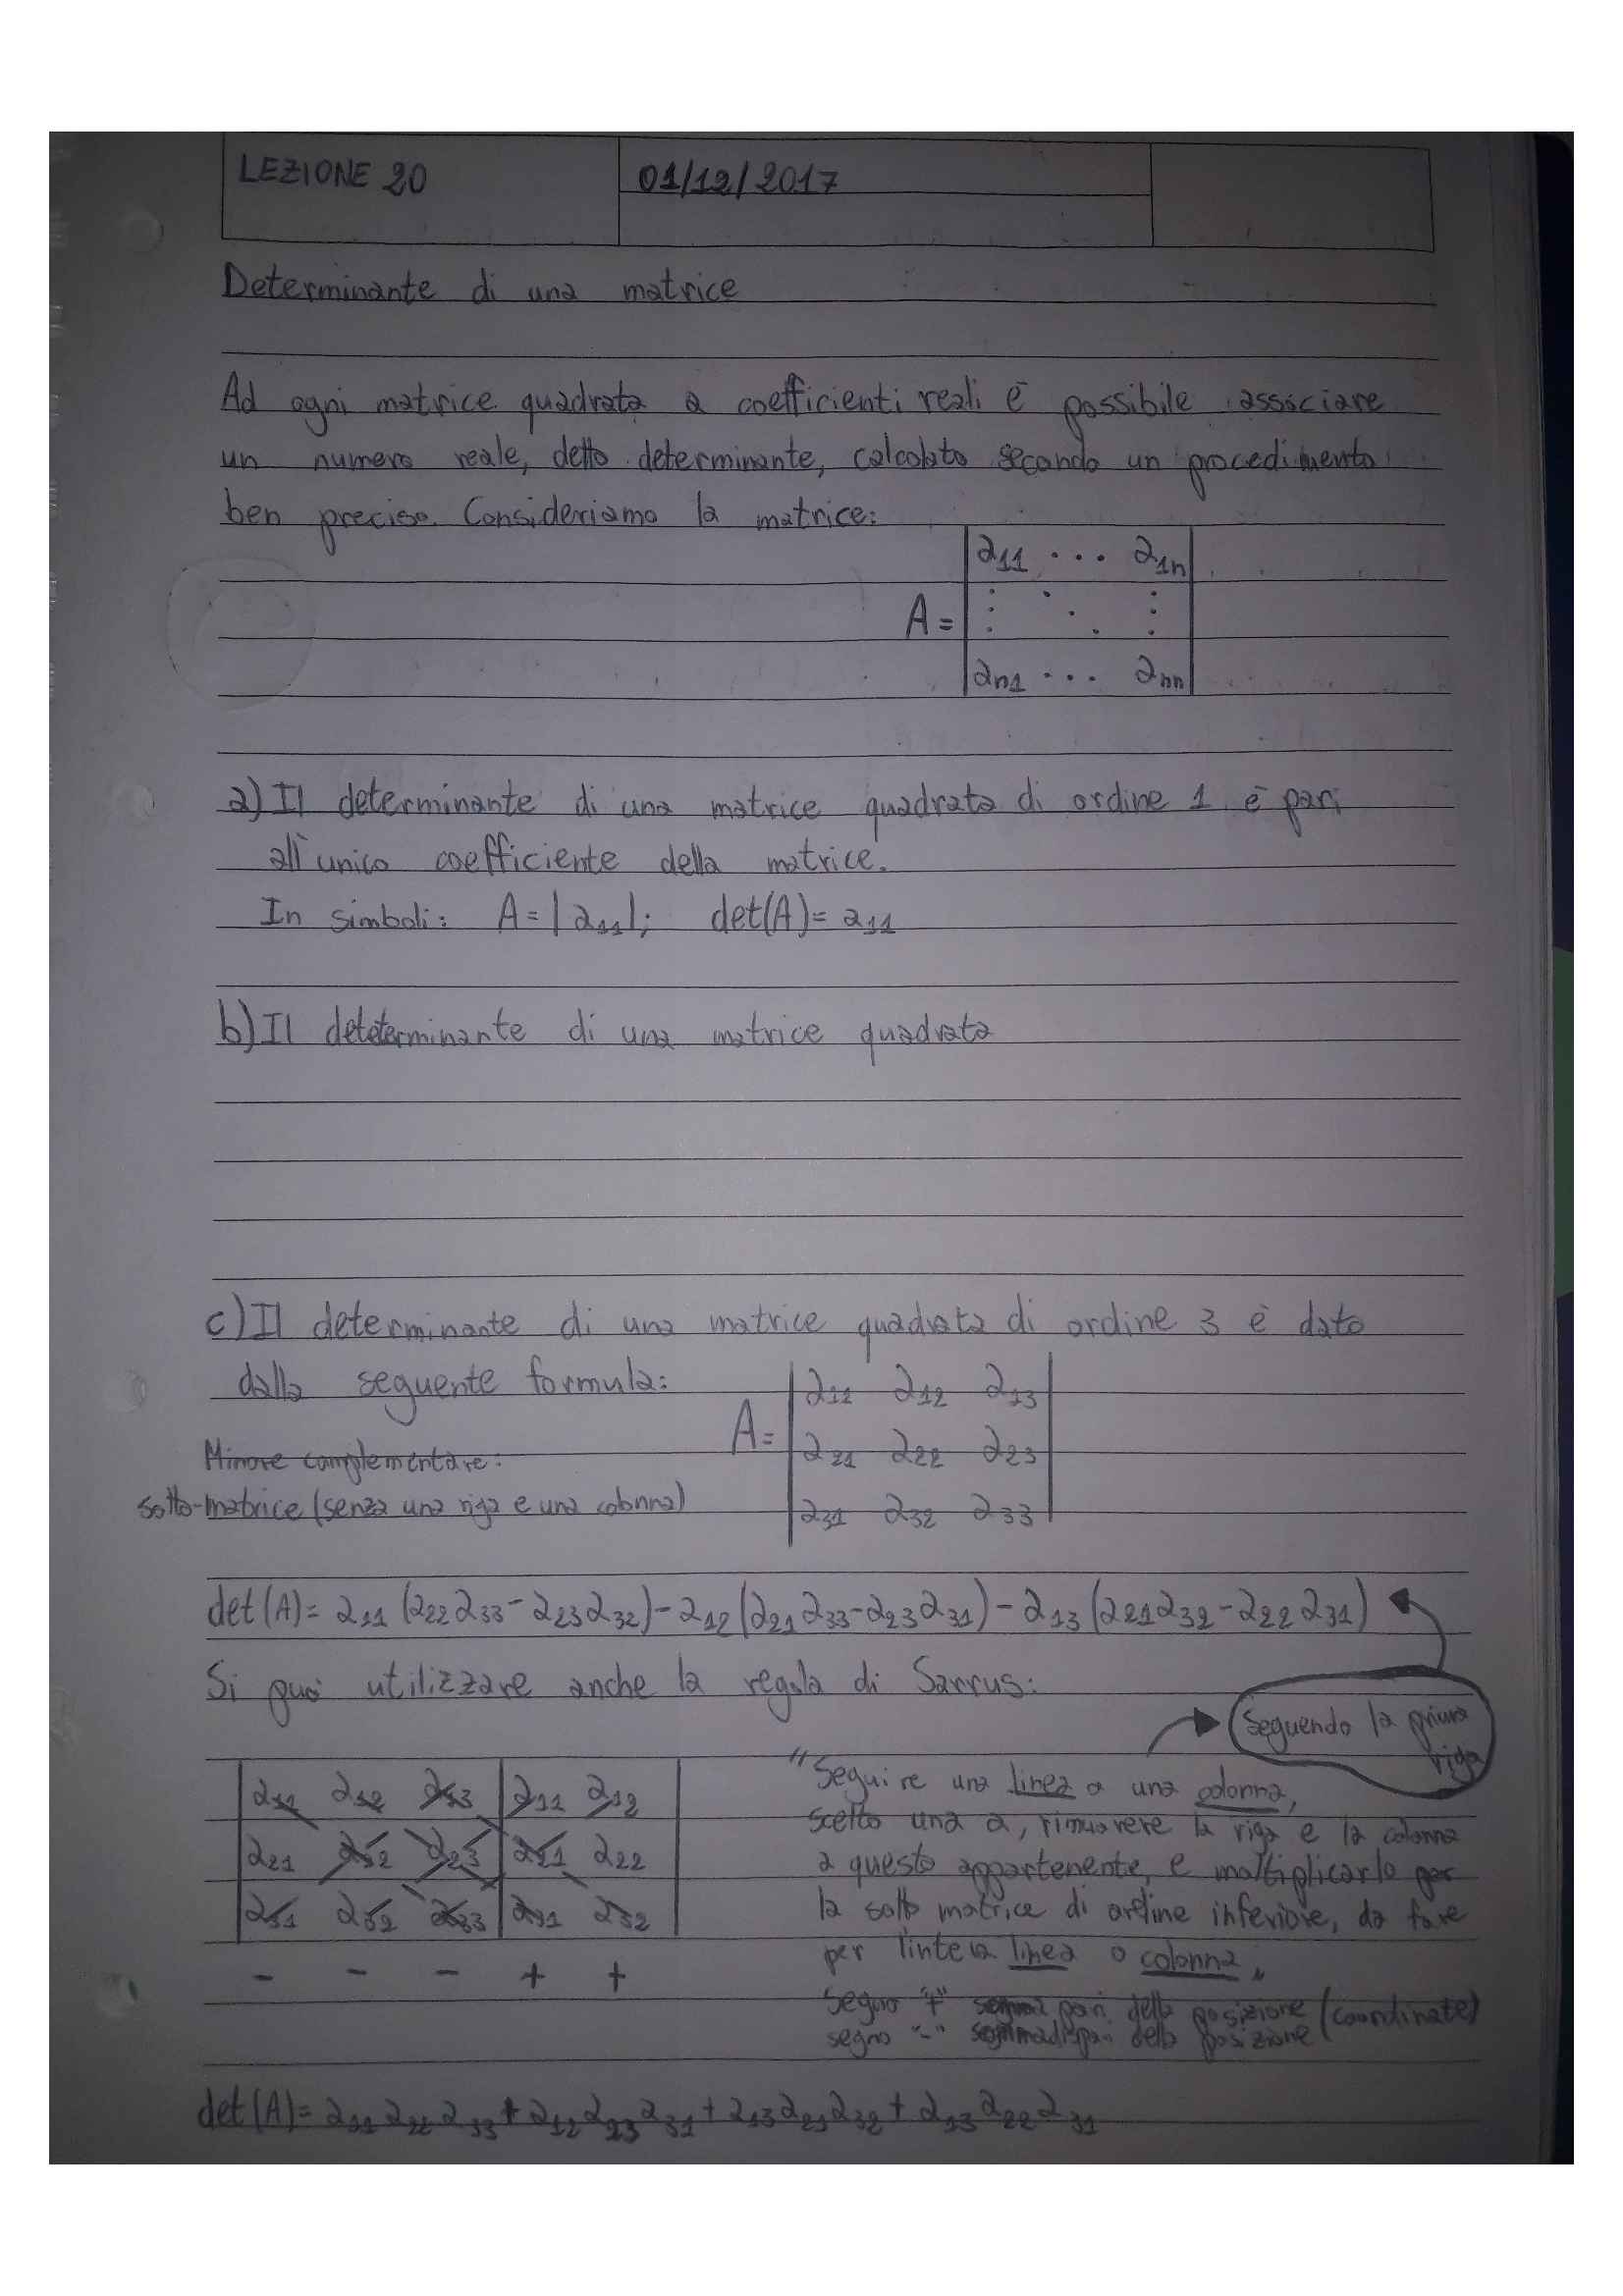 LEZIONE 20
01/12/2017
Determinante di una matrice
Ad ogni matrice quadrata a coefficienti reali è possibile associare
un numero reale, detto determinante, calcolato secondo un procedimento
ben preciso. Consideriamo la matrice:
a11 ... a1n
A= ⋮ ⋱ ⋮
an1 ... ann
a) Il determinante di una matrice quadrata di ordine 1 è pari
all'unico coefficiente della matrice.
In simboli: A=|a11|; det(A)= a11
b) Il deteterminante di una matrice quadrata
c) Il determinante di una matrice quadrata di ordine 3 è dato
dalla seguente formula:
a11 a12 a13
A= a21 a22 a23
a31 a32 a33
Minore complementare:
sotto-matrice (senza una riga e una colonna)
det(A)= a11(a22a33-a23a32)-a12(a21a33-a23a31)-a13(a21a32-a22a31)
Si può utilizzare anche la regola di Sarrus:
Seguendo la prima
riga
a11 a12 a13 a11 a12
a21 a22 a23 a21 a22
a31 a32 a33 a31 a32
- - - + +
"Seguire una linea o una colonna,
scelto una a, rimuovere la riga e la colonna
a questo appartenente, e moltiplicarlo per
la sotto matrice di ordine inferiore, da fare
per l'intera linea o colonna"
segno "+" somma pari della posizione (coordinate)
segno "-" somma dispari della posizione
det(A)= a11a22a33+a12a23a31+a13a21a32+a13a22a31